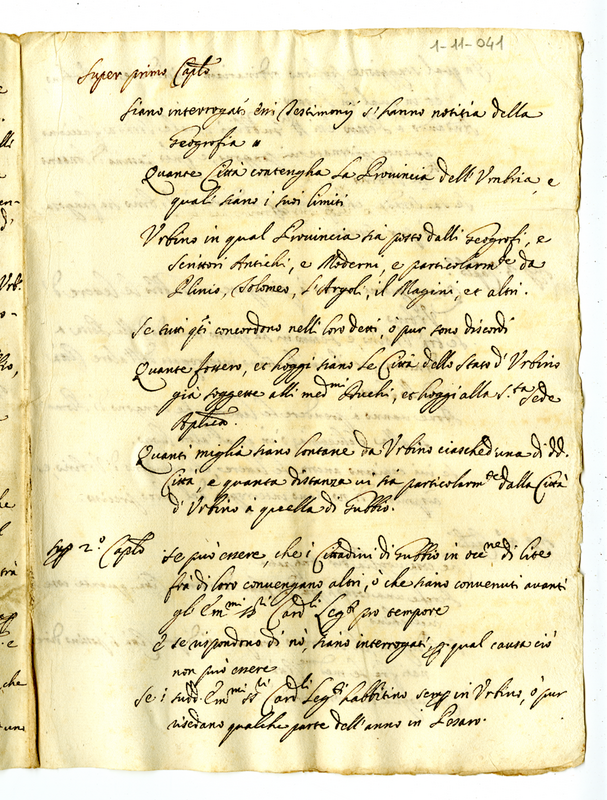 1-11-041
Super primo Caplo
siano interrogati essi Testimonij s'hanno notitia della
Geografia
Quante Città contengha la Provincia dell'Vmbria, e
quali siano i suoi limiti
Vrbino in qual Provincia sia posto dalli Geografi, e
Scrittori Antichi, e Moderni, e particolarmte da
Plinio, Tolomeo, l'Argoli, il Magini, et altri.
Se tutti qti concordono nelli loro detti, ò pur sono discordi
Quante fossero, et hoggi siano le Città dello Stato d'Vrbino
già soggette alli medmi Duchi, et hoggi alla S.ta Sede
Aplica.
Quanti miglia siano lontane da Vrbino ciascheduna di dd.
Città, e quanta distanza vi sia particolarmte dalla Città
d'Vrbino à quella di Gubbio.
Sup 2.o Caplo
se può essere, che i Cittadini di Gubbio in occne di lite
frà di loro convengano altri, ò che siano convenuti avanti
gli Emmi SSri Cardli Legti pro tempore
E se rispondono di nò, siano interrogati, p qual causa ciò
non può essere
Se i sudd Emmi SSri Cardli Legti habbitino semp in Vrbino, ò pur
risedano qualche parte dell'anno in Pesaro.